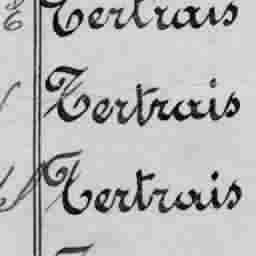 Tertrais
Tertrais
Tertrais